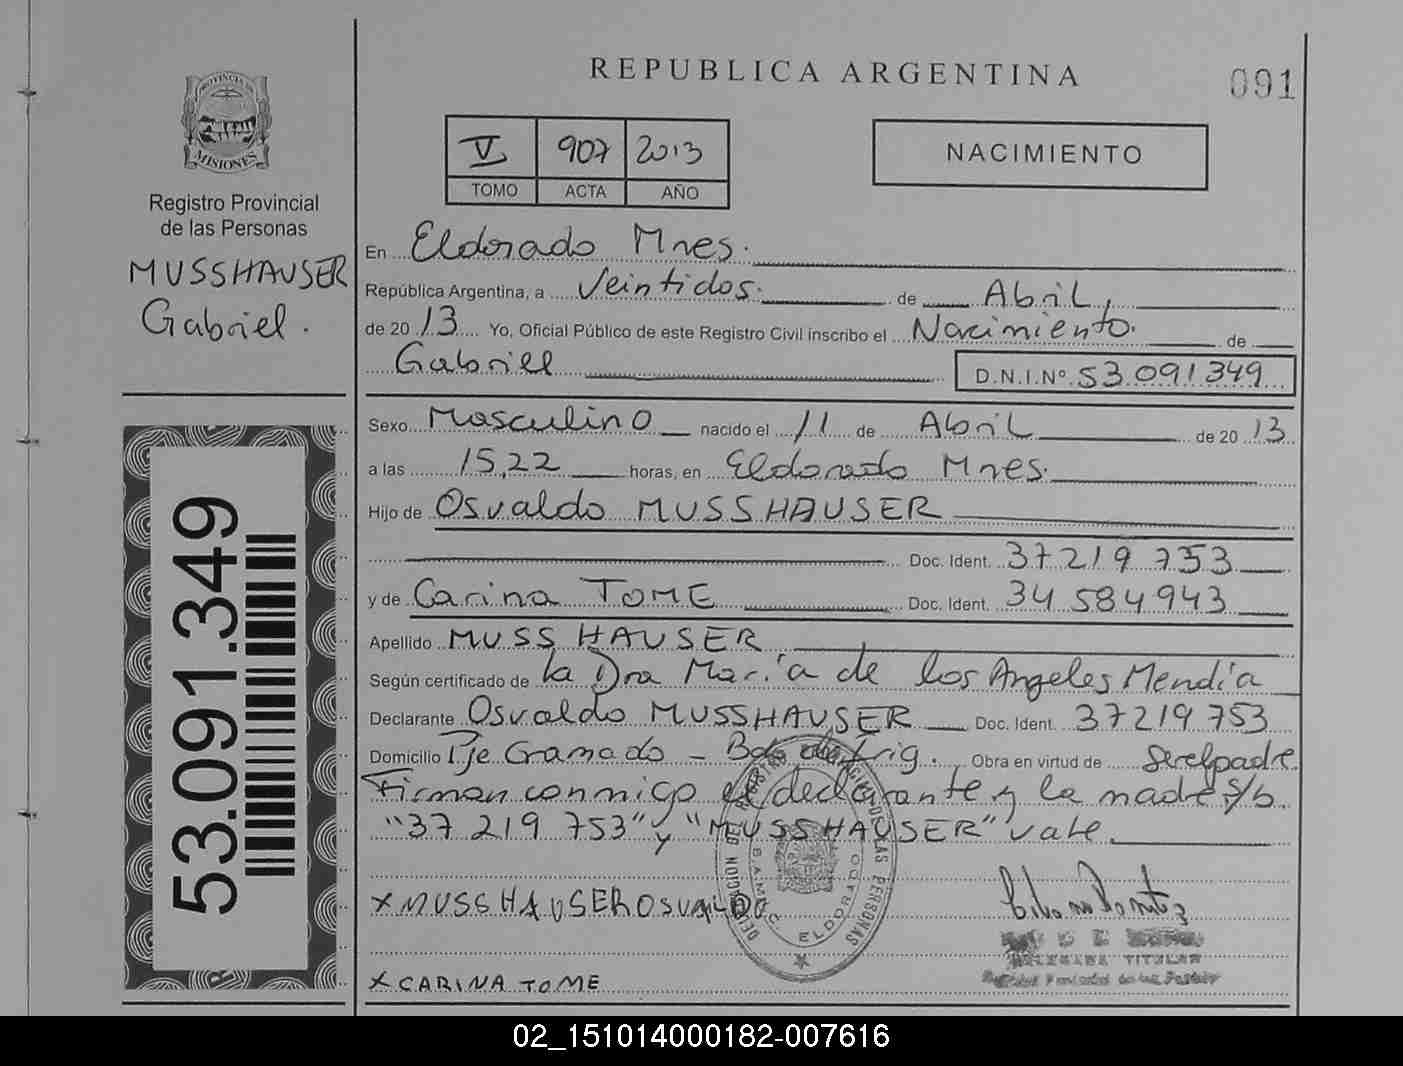 REPUBLICA ARGENTINA
091
PROVINCIA DE
MISIONES
Registro Provincial
de las Personas
MUSSHAUSER
Gabriel.
V 907 2013
TOMO ACTA AÑO
NACIMIENTO
En Eldorado Mnes.
República Argentina, a Veintidos. de Abril,
de 2013 Yo, Oficial Público de este Registro Civil inscribo el Nacimiento. de
Gabriel D.N.I.Nº 53.091.349
Sexo Masculino nacido el 11 de Abril de 2013
a las 15,22 horas, en Eldorado Mnes.
Hijo de Osvaldo MUSSHAUSER
Doc. Ident. 37 219 753
y de Carina TOME Doc. Ident. 34 584 943
Apellido MUSSHAUSER
Según certificado de la Dra María de los Angeles Mendía
Declarante Osvaldo MUSSHAUSER Doc. Ident. 37219753
Domicilio Pje Gramado - Obra en virtud de Ser el padre.
Firman conmigo el declarante y la madre. s/b.
"37 219 753" y "MUSSHAUSER" vale.
X MUSSHAUSER OSVALDO
X CARINA TOME
DELEGACION DEL REGISTRO PROVINCIAL DE LAS PERSONAS
ELDORADO
DELEGADA TITULAR
53.091.349
02_151014000182-007616